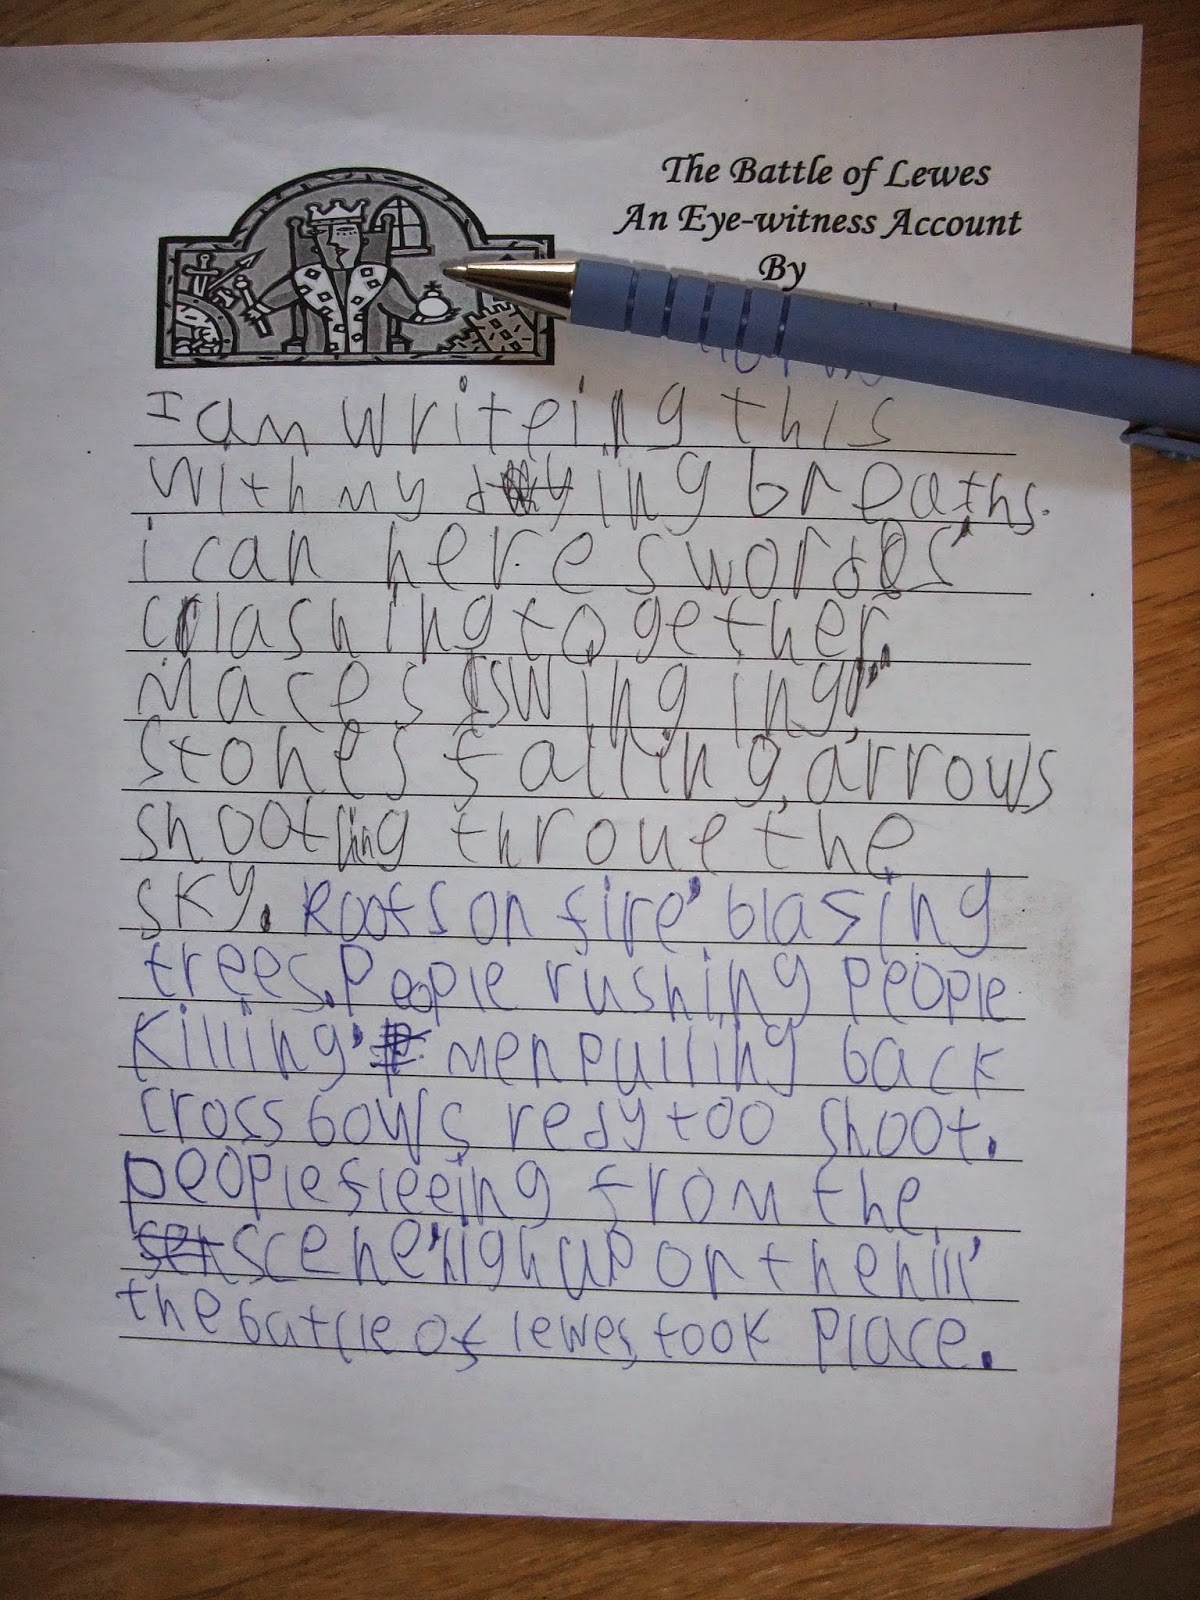 The Battle of Lewes
An Eye-witness Account
By
I am writeing this
with my dying breaths.
i can here swords'
clashing together,
Maces swinging,
stones falling, arrows
shooting throue the
sky. Roofs on fire' blasing
trees. People rushing people
Killing' men pulling back
crossbows redy too shoot.
people fleeing from the
scene'high up on the hill'
the battle of lewes took place.